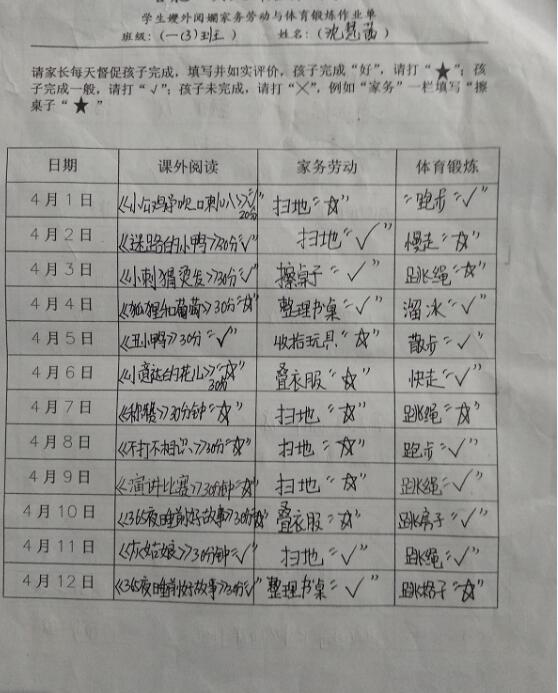 学生课外阅读家务劳动与体育锻炼作业单
班级:(一(3)班) 姓名:(沈慧函)
请家长每天督促孩子完成,填写并如实评价,孩子完成“好”,请打“★”;孩
子完成一般,请打“√”;孩子未完成,请打“╳”,例如“家务”一栏填写“擦
桌子“★”
日期 课外阅读 家务劳动 体育锻炼
4月1日 《小公鸡学吹喇叭》20分“√” 扫地“☆” “跑步“√”
4月2日 《迷路的小鸭》30分“√” 扫地“√” 慢走“☆”
4月3日 《小刺猬烫发》30分“√” 擦桌子“√” 跳绳“☆”
4月4日 《狐狸和葡萄》30分“☆” 整理书桌“√” 溜冰“√”
4月5日 《丑小鸭》30分“√” 收拾玩具“☆” 散步“√”
4月6日 《小意达的花儿》30分“☆” 叠衣服“☆” 快走“√”
4月7日 《称赞》30分钟“☆” 扫地“☆” 跳绳“☆”
4月8日 《不打不相识》30分“☆” 扫地“☆” 跑步“√”
4月9日 《演讲比赛》30分钟“☆” 扫地“☆” 跳绳“√”
4月10日 《365夜睡前好故事》30分“☆” 叠衣服“☆” 跳房子“√”
4月11日 《灰姑娘》30分钟“√” 扫地“√” 跳绳“√”
4月12日 《365夜睡前好故事》30分“√” 整理书桌“√” 跳格子“☆”